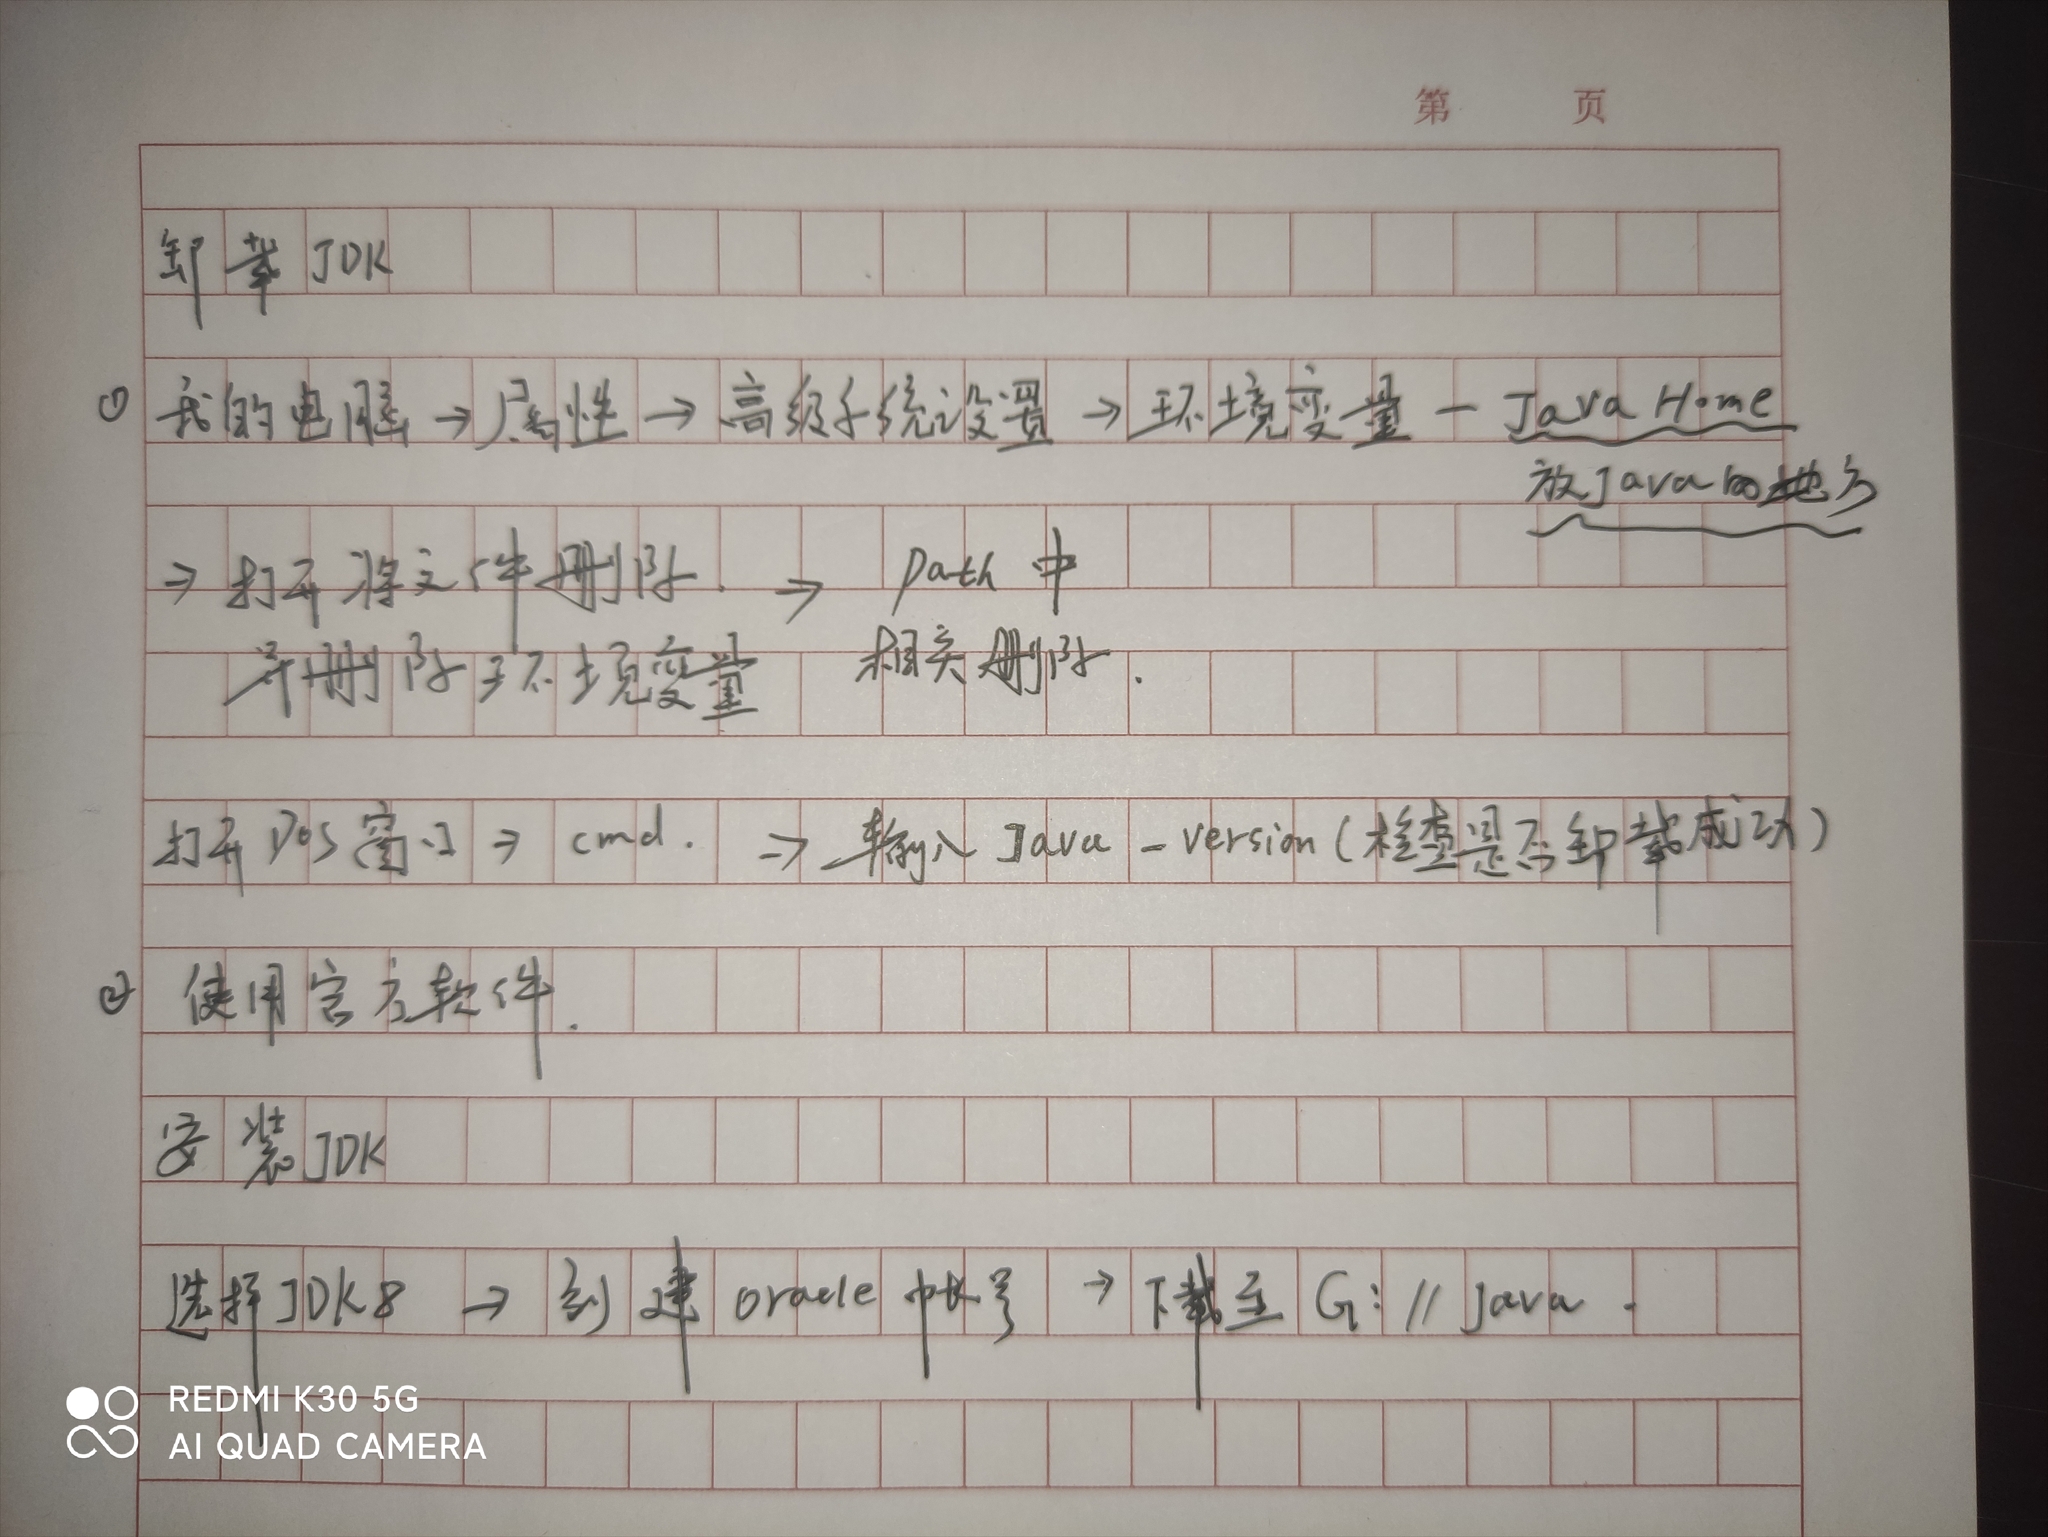 第 页
卸载 JDK
① 我的电脑 → 属性 → 高级系统设置 → 环境变量 — Java Home
放Java的地方
→ 打开将文件删除. → path 中
并删除环境变量 相关删除.
打开 Dos 窗口 → cmd. → 输入 Java -version (检查是否卸载成功)
② 使用官方软件.
安装 JDK
选择 JDK8 → 创建 oracle 帐号 → 下载至 G:// Java.
REDMI K30 5G
AI QUAD CAMERA